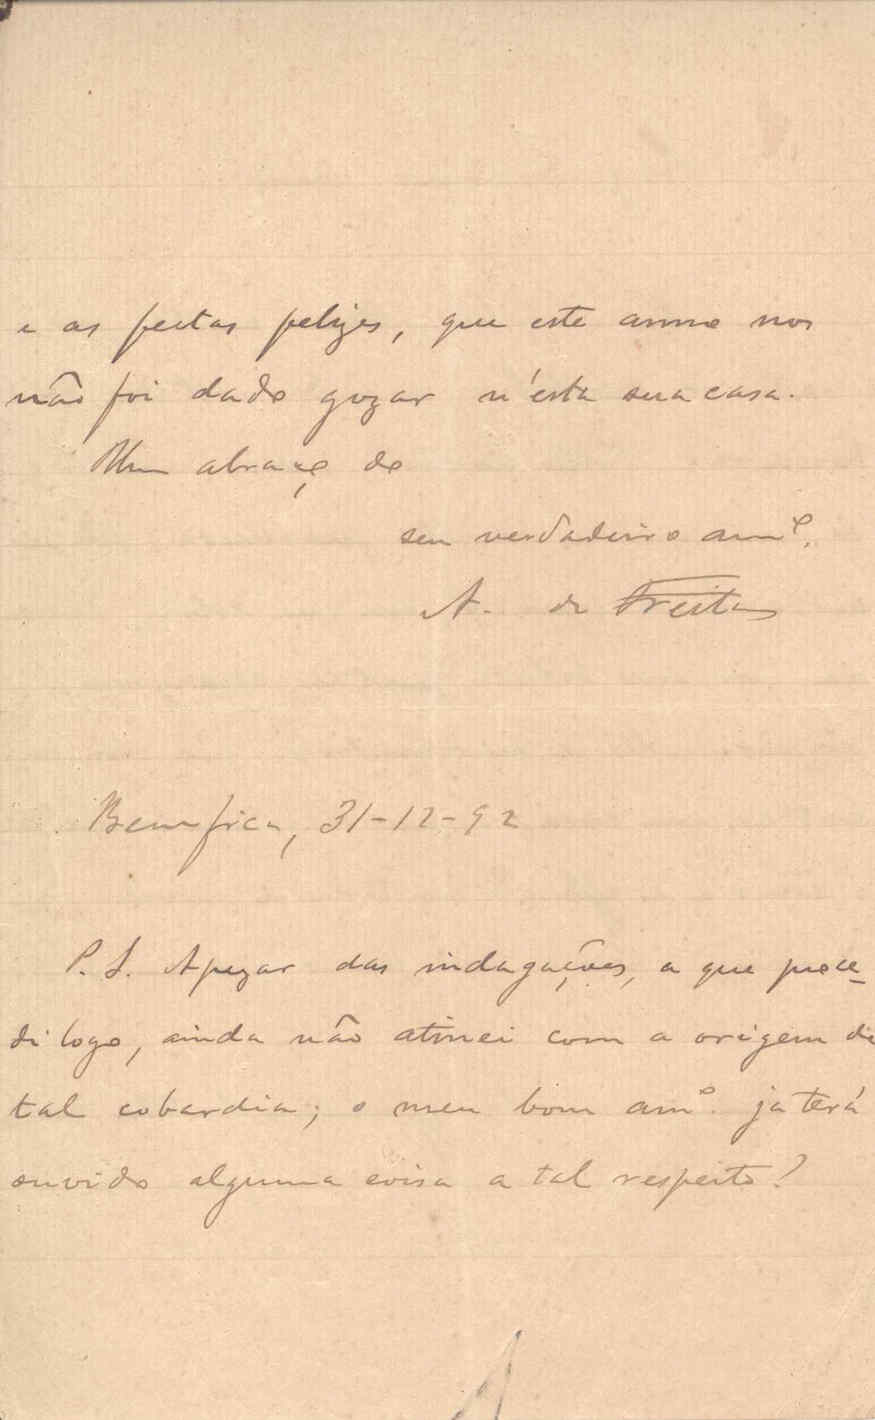 e as festas felizes, que este anno nos
não foi dado gozar n'esta sua casa.
Um abraço do
seu verdadeiro amº.
A. de Freitas
Bemfica, 31-12-92
P. S. Apezar das indagações, a que proce-
di logo, ainda não atinei com a origem de
tal cobardia; o meu bom amº. ja terá
ouvido alguma coisa a tal respeito?